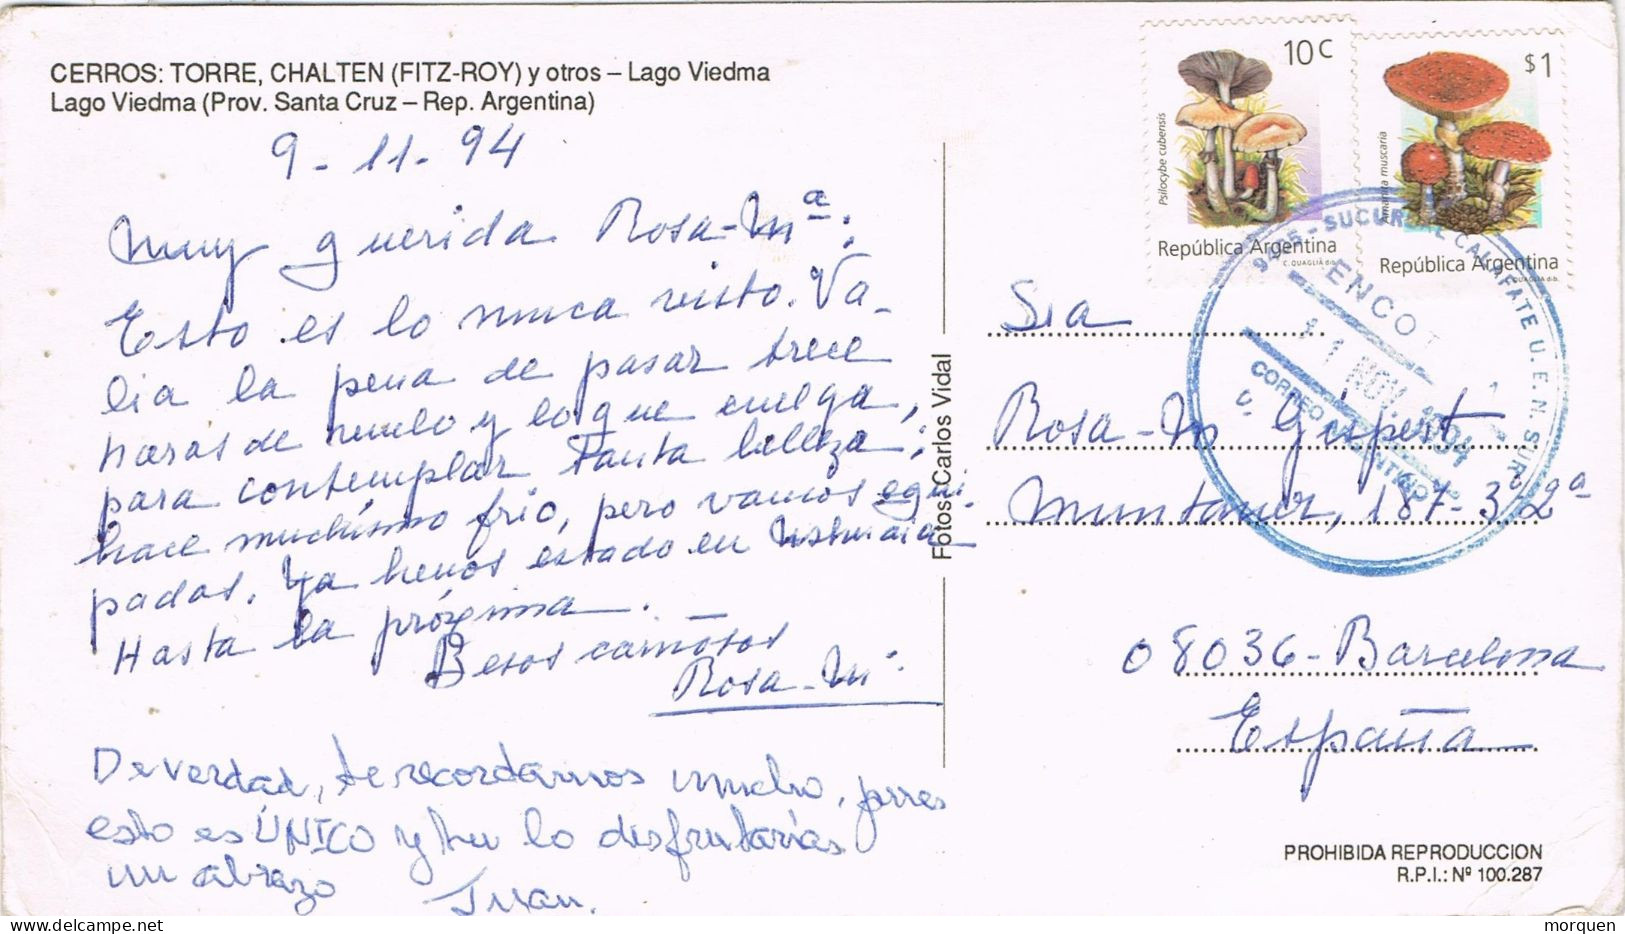 CERROS: TORRE, CHALTEN (FITZ-ROY) y otros – Lago Viedma
Lago Viedma (Prov. Santa Cruz – Rep. Argentina)
9-11-94
Muy querida Rosa-Mª:
Esto es lo nunca visto. Va-
lia la pena de pasar trece
horas de vuelo y lo que cuelga,
para contemplar tanta belleza;
hace muchísimo frío, pero vamos equi-
pados. Ya hemos estado en Ushuaia
Hasta la próxima.
Besos cariñosos
Rosa-Mª
De verdad, te recordamos mucho, pues
esto es ÚNICO y tu lo disfrutarías
un abrazo Juan.
Fotos: Carlos Vidal
10 C
Psilocybe cubensis
República Argentina
C. QUAGLIA dib.
$1
Amanita muscaria
República Argentina
C. QUAGLIA dib.
SUCURSAL CALAFATE U.E.N. SUR
ENCOT
11 NOV. 1994
CORREO ARGENTINO
Sra
Rosa-Mª Gispert
Muntaner, 187-3º2ª
08036-Barcelona
España
PROHIBIDA REPRODUCCION
R.P.I.: Nº 100.287
morquen